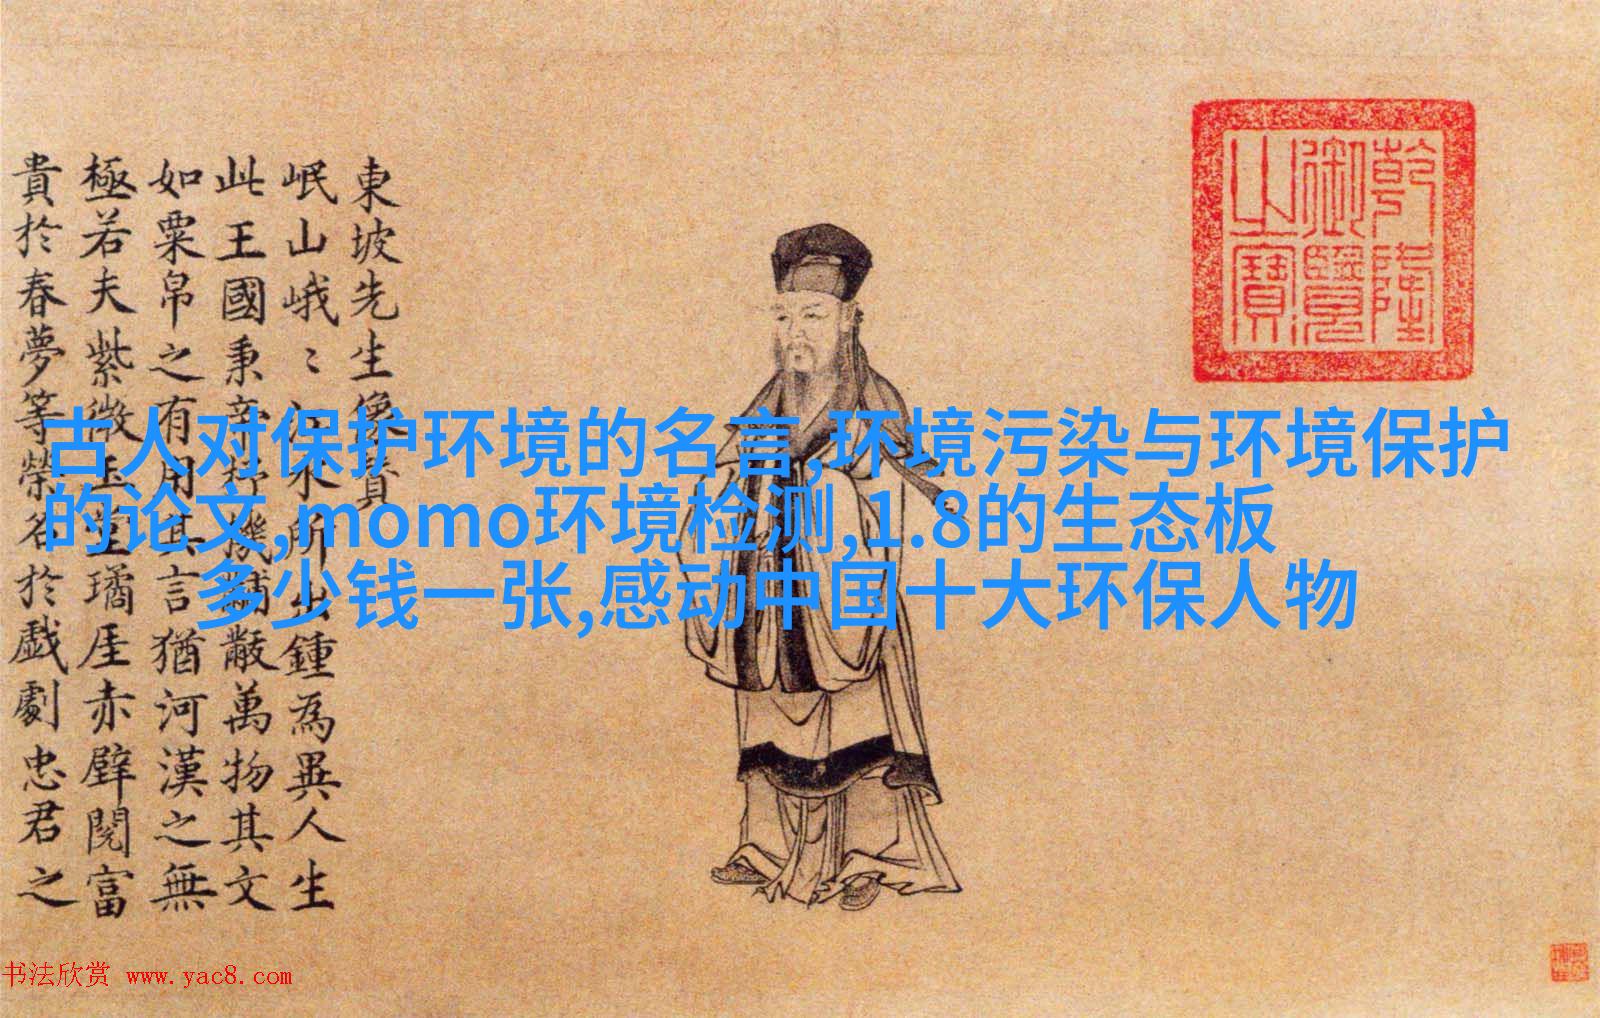 乾隆
御覽
之寶
東坡先生像賛
岷山峨〻江水所出鍾為異人生
此王國秉帝杼機黼黻萬物其文
如粟帛之有用其言猶河漢之無
極若夫紫微玉堂璚厓赤壁閲富
貴於春夢等榮名於戲劇忠君之
古人对保护环境的名言,环境污染与环境保护
的论文,momo环境检测,1.8的生态板
多少钱一张,感动中国十大环保人物
书法欣赏 www.yac8.com